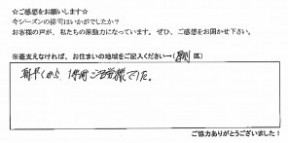 ☆ご感想をお願いします☆
キシーズンの接司はいかがでしたか？
お客様の声が、私たちの原動力になっています。ぜひ、ご感想をお聞かせ下さい。
※差支えなければ、お住まいの地域をご記入ください→( 区)
朝早くから 1年間ご苦労様でした。
ご協力ありがとうございました！